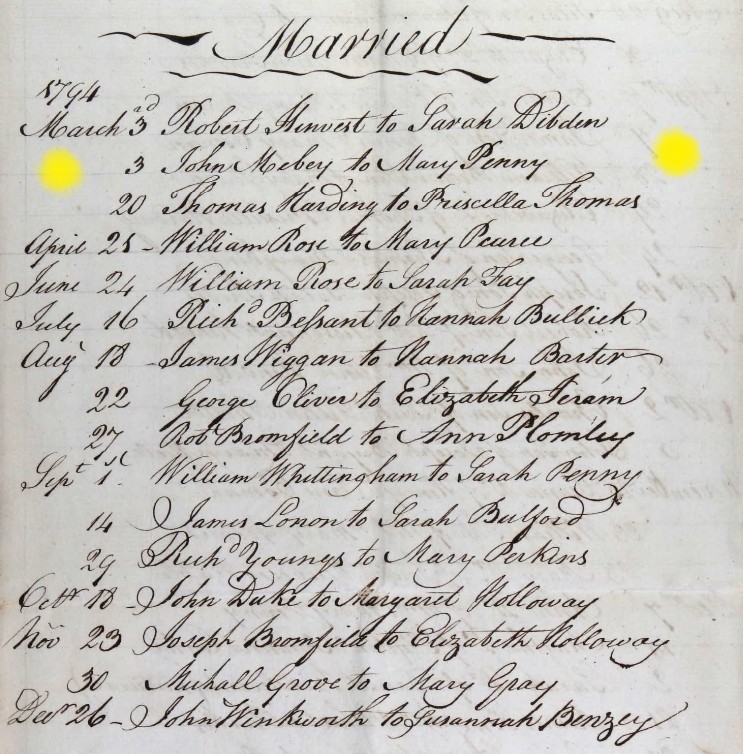 Married
1794
March 3rd Robert Hinvest to Sarah Dibden
3 John Mebey to Mary Penny
20 Thomas Harding to Priscella Thomas
April 25 - William Rose to Mary Pearce
June 24 William Rose to Sarah Fay
July 16 Richd Beſsant to Hannah Bulbick
Augt 18 - James Wiggan to Hannah Barter
22 George Oliver to Elizabeth Feram
27 Robt Bromfield to Ann Plomley
Sept 1st William Whittingham to Sarah Penny
14 James Lonon to Sarah Bulford
29 Richd Youngs to Mary Perkins
Octr 18 - John Duke to Margaret Holloway
Nov 23 Joseph Bromfield to Elizabeth Holloway
30 Mihall Grove to Mary Gray
Decr 26 - John Winkworth to Susannah Benzey